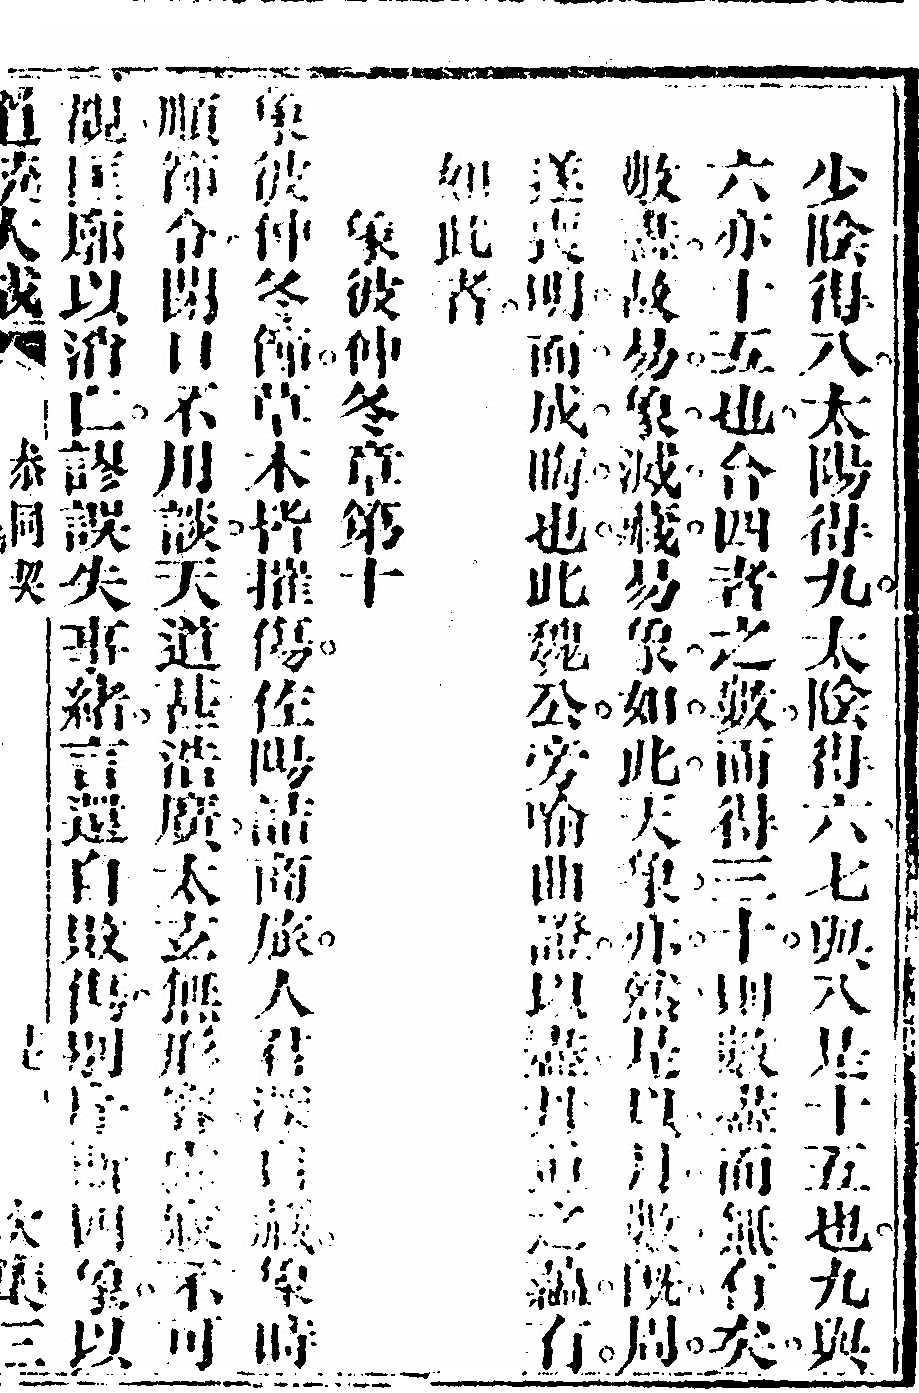 少陰得八太陽得九太陰得六七與八是十五也九與
六亦十五也合四者之數而得三十則數盡而無行矣
數盡故易象滅藏易象如此天象亦然是以月數既周
遂喪明而成晦也此魏公旁喻曲證以盡丹道之蘊有
如此者
象彼仲冬章第十
象彼仲冬節草木皆摧傷佐陽詰商旅人君深自藏象時
順節令閉口不用談天道甚浩廣太玄無形容虛寂不可
覩匡廓以消亡謬誤失事緒言還自敗傷別序斯四象以
參同契